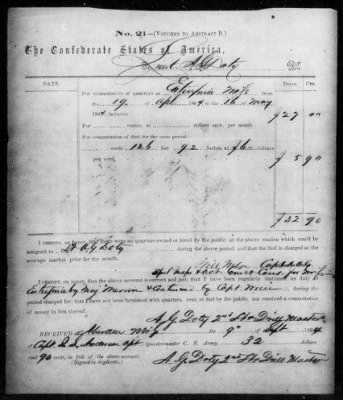 No. 21—(VOUCHER TO ABSTRACT D.)
The Confederate States of America,
To Lieut A G Doty Dr.
DATE. DOLLS. CTS.
For commutation of quarters at Enterprise Miss
from the 19 April 1864 to 16 May
1864, inclusive $27 00
For rooms, at dollars each, per month.
For commutation of fuel for the same period:
cords
per cord, $5 90
$32 90
I CERTIFY, on honor, that there were no quarters owned or hired by the public, at the above station which could be
assigned to Lt A G Doty during the above period; and that the fuel is charged at the
average market price for the month.
I CERTIFY, on honor, that the above account is correct and just; that I have been regularly stationed on duty at
Enterprise by Maj by Capt during the
period charged for; that I have not been furnished with quarters, rent or fuel by the public, nor received a commutation
of money in lieu thereof.
A G Doty 2nd Lt & Drill Master
RECEIVED Meridian Miss the 9th of Sept 1864
of Capt Quartermaster C. S. Army, 32 dollars
and 90 cents, in full of the above account.
(Signed in duplicate.)
A G Doty 2nd Lt & Drill Master